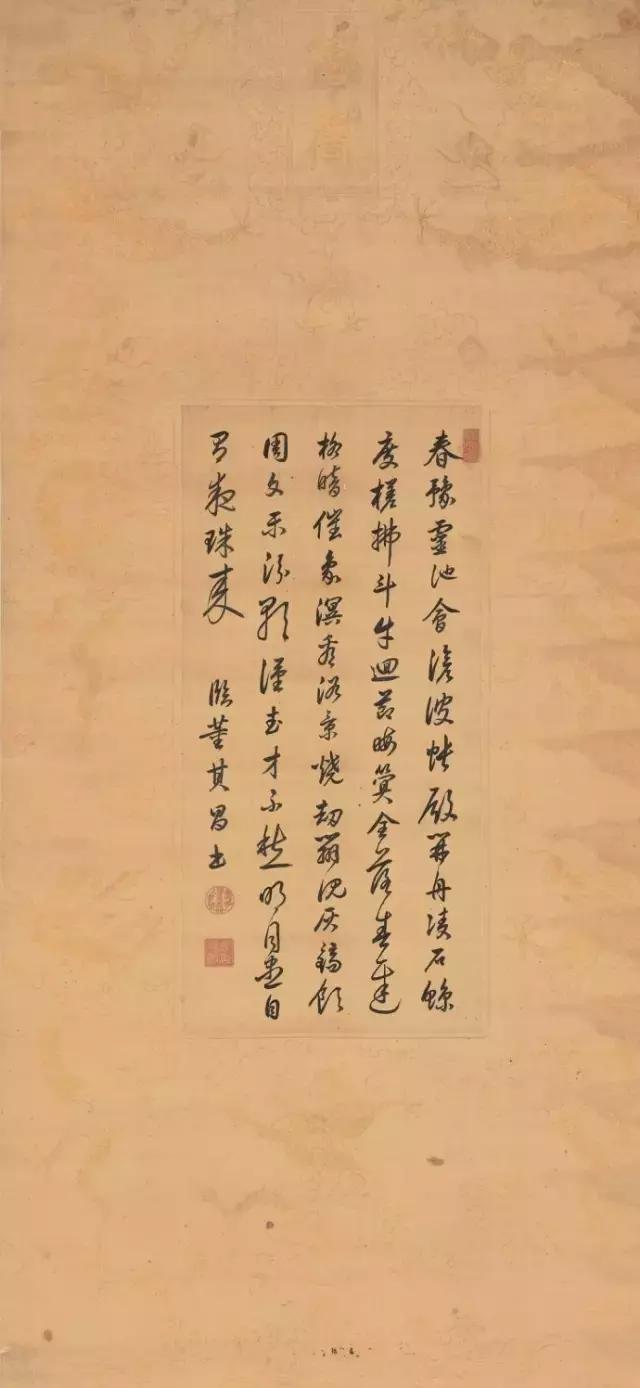 春豫靈池會滄波帳殿開舟凌石鯨
度槎拂斗牛迴節晦蓂全落春遲
柳暗催象溟看浴景燒劫辨沈灰鎬飲
周文樂汾歌漢武才不愁明月盡自
有夜珠來 臨董其昌書